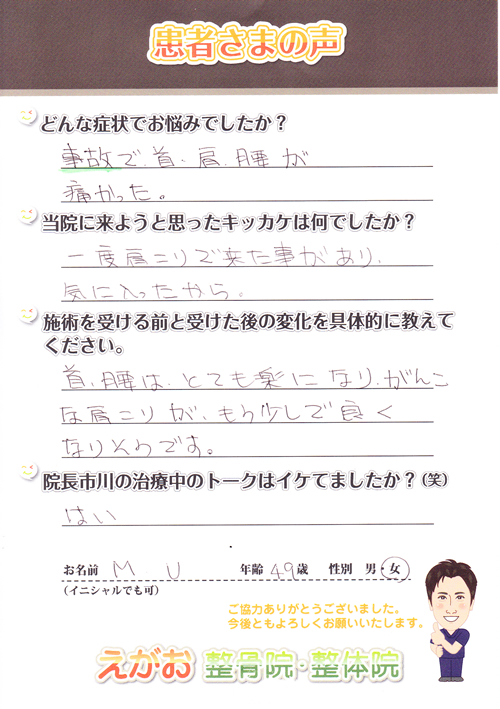 患者さまの声
どんな症状でお悩みでしたか？
事故で、首、肩、腰が
痛かった。
当院に来ようと思ったキッカケは何でしたか？
一度肩こりで来た事があり、
気に入ったから。
施術を受ける前と受けた後の変化を具体的に教えて
ください。
首、腰は、とても楽になり、がんこ
な肩こりが、もう少しで良く
なりそうです。
院長市川の治療中のトークはイケてましたか？（笑）
はい
お名前 M U 年齢 49 歳 性別 男・女
（イニシャルでも可）
ご協力ありがとうございました。
今後ともよろしくお願いいたします。
えがお 整骨院・整体院